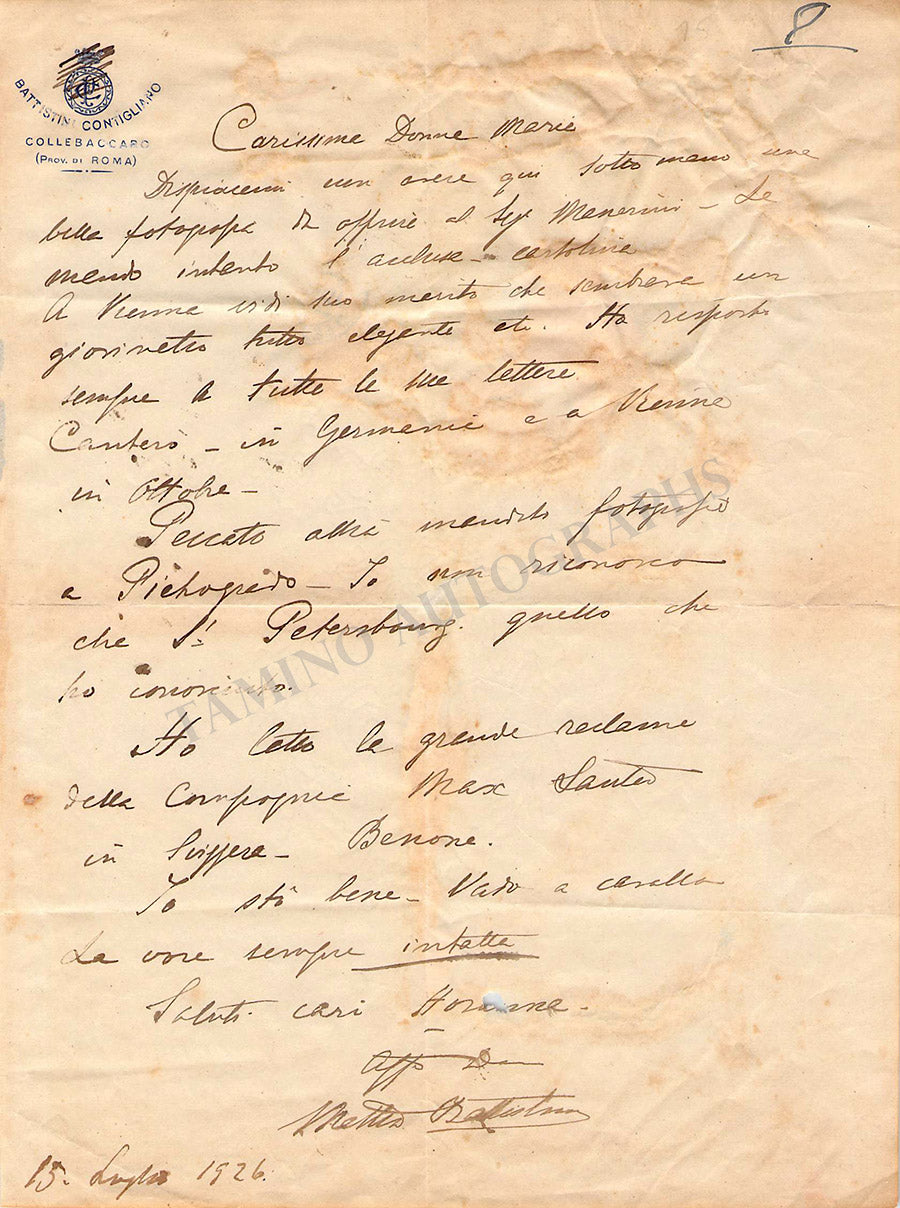 8
BATTISTINI CONTIGLIANO
COLLEBACCARO
(PROV. DI ROMA)
Carissima Donna Maria
Dispiacemi non avere qui sotto mano una
bella fotografia da offrire al Sig Manerini – Le
mando intanto l'acclusa – cartolina
A Vienna vidi suo marito che sembrava un
giovinetto tutto elegante etc. Ha risposto
sempre a tutte le sue lettere
Canterò – in Germania e a Vienna
in Ottobre –
Peccato abbia mandato fotografie
a Pietrogrado – Io non riconosco
che St. Petersbourg. quello che
ho conosciuto.
Ho letto la grande reclame
della Compagnia Max
in Svizzera – Benone.
Io stò bene – Vado a cavallo
La voce sempre intatta
Saluti cari
Affo
Mattia Battistini
15. Luglio 1926.
TAMINO AUTOGRAPHS